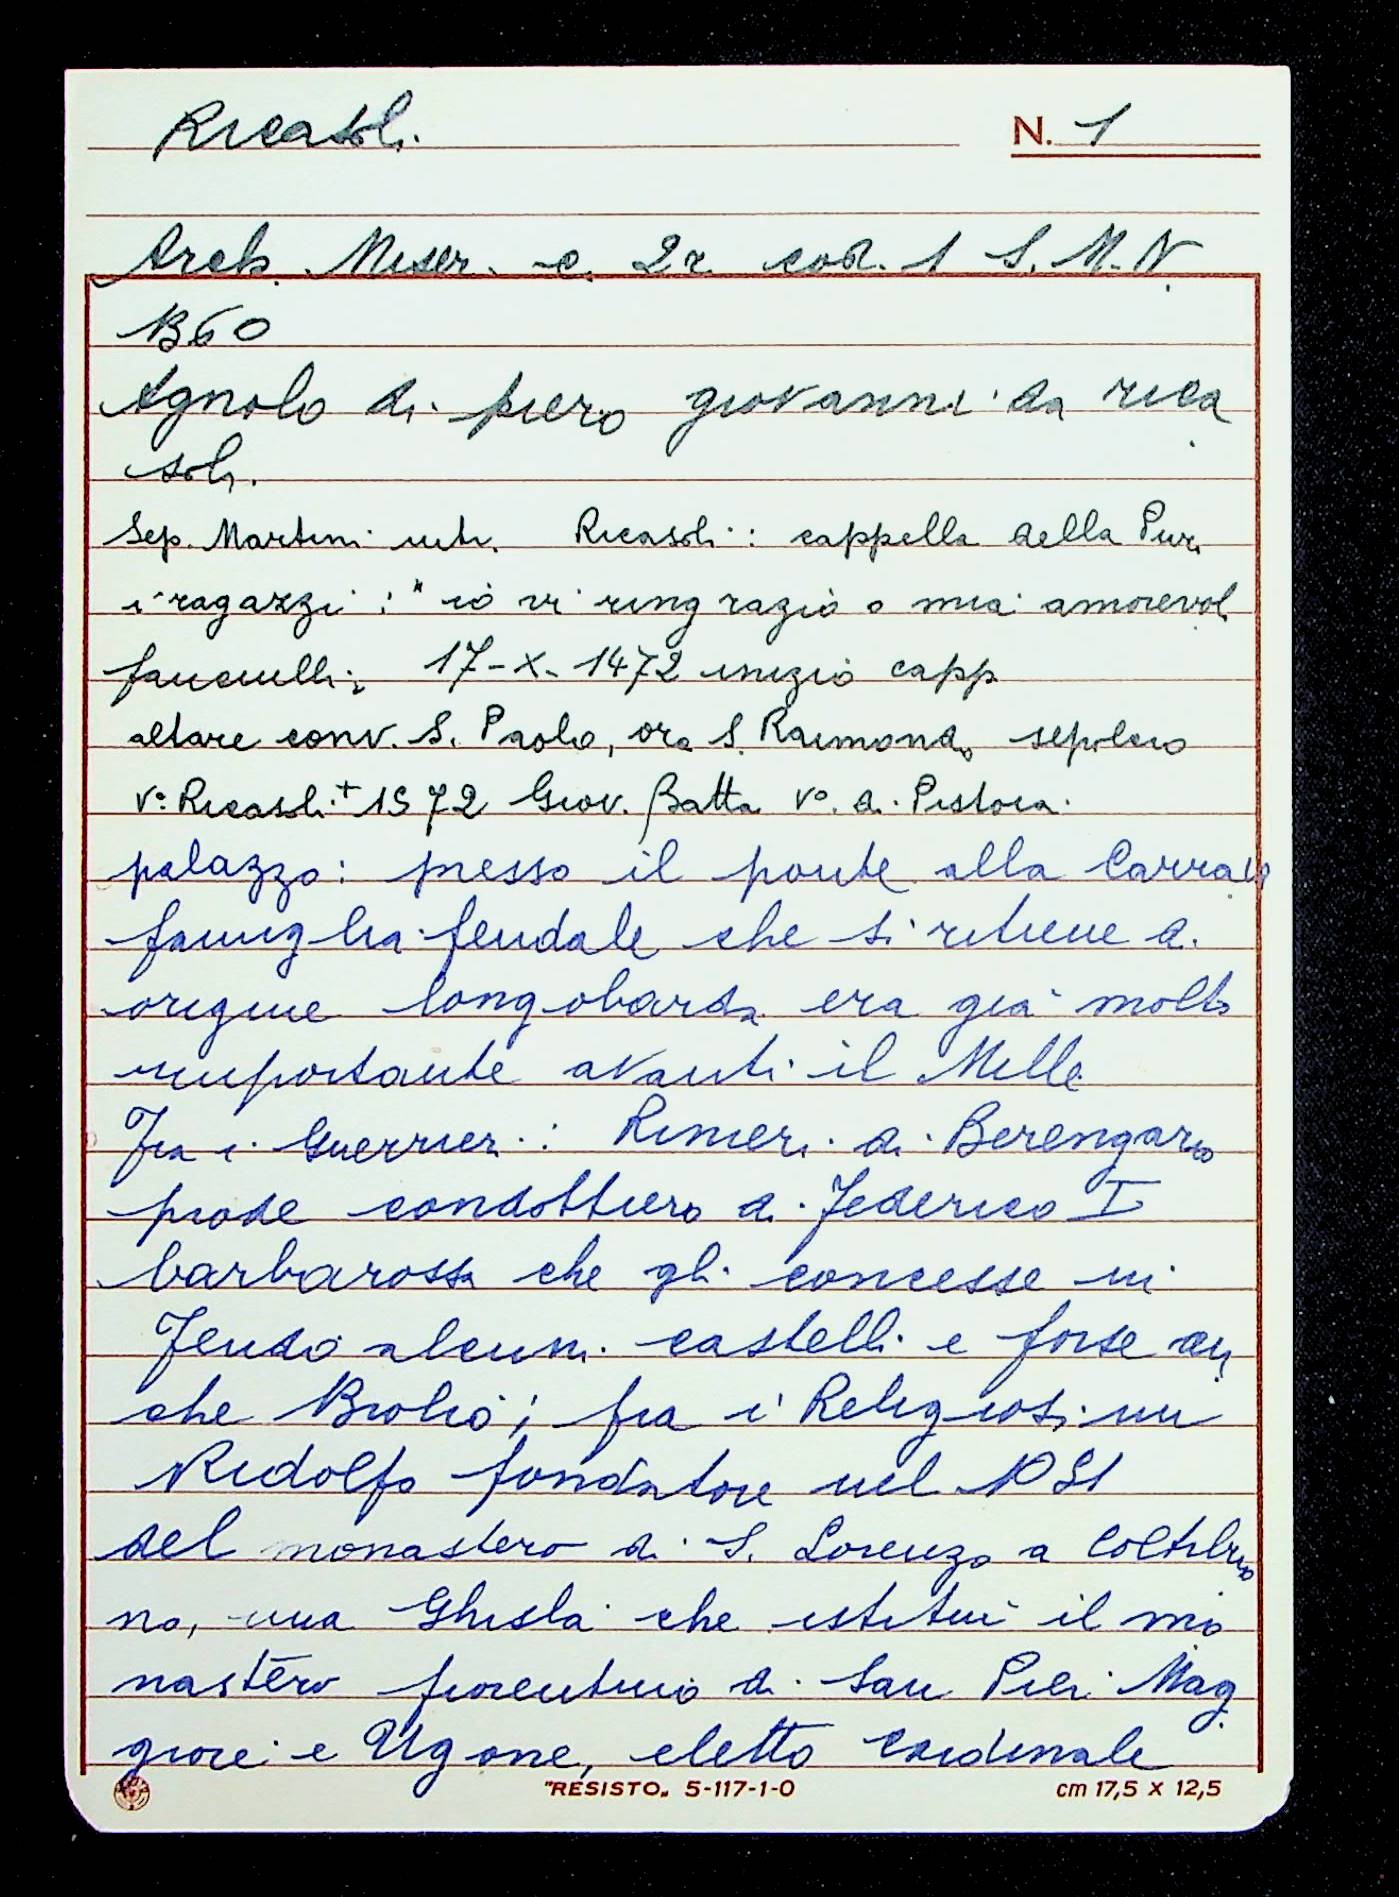 Ricasoli. N. 1
Arch. Miser. c. 2r cod. 1 S. M. N
1360
Agnolo di piero giovanni da rica
soli.
Sep. Martini Ricasoli: cappella della Pur.
i ragazzi: "io vi ringrazio o miei amorevol
fanciulli, 17-X-1472 inizio capp
altare conv. S. Paolo, ora S. Raimondo sepolcro
vo. Ricasoli + 1572 Giov. Batta vo. di Pistoia.
palazzo: presso il ponte alla Carraia
famiglia feudale che si ritiene di
origine longobarda era già molto
importante avanti il Mille
Fra i Guerrieri: Rinieri di Berengario
prode condottiero di Federico I
barbarossa che gli concesse in
Feudo alcuni castelli e forse an
che Brolio; fra i Religiosi un
Ridolfo fondatore nel 1051
del monastero di S. Lorenzo a Coltibuo
no, una Ghisla che istituì il mo
nastero fiorentino di San Pier Mag
giore e Ugone, eletto Cardinale
"RESISTO„ 5-117-1-0 cm 17,5 x 12,5